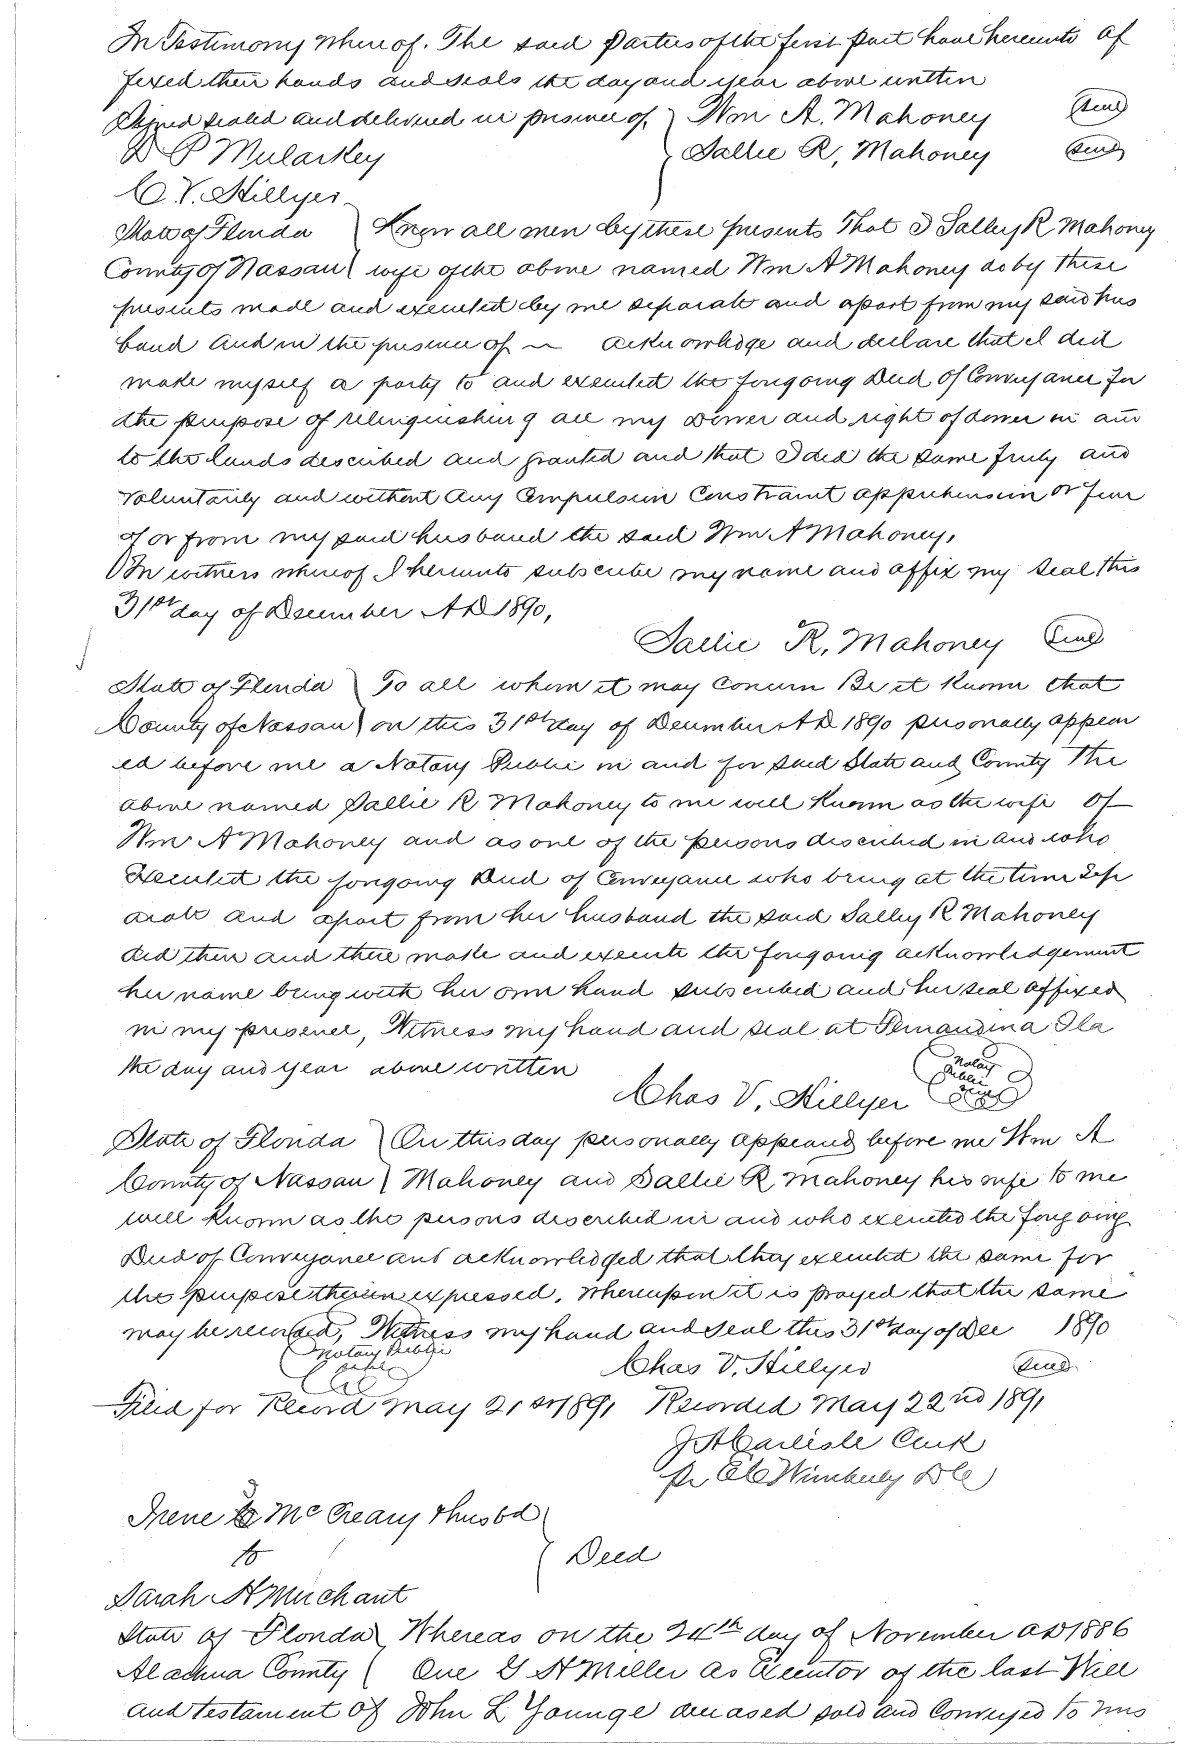 In Testimony Whereof. The said Parties of the first part have hereunto af
fixed their hands and seals the day and year above written
Signed sealed and delivered in presence of } Wm A. Mahoney (Seal)
D P Mularkey } Sallie R, Mahoney (Seal)
C. V. Hillyer
State of Florida } Know all men by these presents That I Salley R Mahoney
County of Nassau } wife of the above named Wm A Mahoney do by these
presents made and executed by me separate and apart from my said hus
band and in the presence of ~ acknowledge and declare that I did
make myself a party to and executed the foregoing Deed of Conveyance for
the purpose of relinquishing all my Dower and right of dower in and
to the lands described and granted and that I did the same freely and
voluntarily and without any Compulsion Constraint apprehension or fear
of or from my said husband the said Wm A Mahoney,
In witness whereof I hereunto subscribe my name and affix my seal this
31st day of December A D 1890,
Sallie R, Mahoney (Seal)
State of Florida } To all whom it may Concern Be it Known that
County of Nassau } on this 31st day of December A D 1890 personally appear
ed before me a Notary Public in and for said State and County The
above named Sallie R Mahoney to me well Known as the wife of
Wm A Mahoney and as one of the persons described in and who
Executed the foregoing Deed of Conveyance who being at the time Sep
arate and apart from her husband the said Salley R Mahoney
did then and there make and execute the foregoing acknowledgement
her name being with her own hand subscribed and her seal affixed
in my presence, Witness my hand and seal at Fernandina Fla
the day and year above written
Chas V, Hillyer Notary Public Seal
State of Florida } On this day personally appeared before me Wm A
County of Nassau } Mahoney and Sallie R Mahoney his wife to me
well Known as the persons described in and who executed the foregoing
Deed of Conveyance and acknowledged that they executed the same for
the purpose therein expressed, Whereupon it is prayed that the same
may be recorded, Witness my hand and seal this 31st day of Dec 1890
Notary Public Seal Chas V. Hillyer (Seal)
Filed for Record May 21st 1891 Recorded May 22nd 1891
J A Carlisle Clerk
pr Wimberly D C
Irene McCreary & husbd
to } Deed
Sarah H Merchant
State of Florida } Whereas on the 24th day of November AD 1886
Alachua County } One G H Miller as Executor of the last Will
and testament of John L Younge deceased sold and Conveyed to